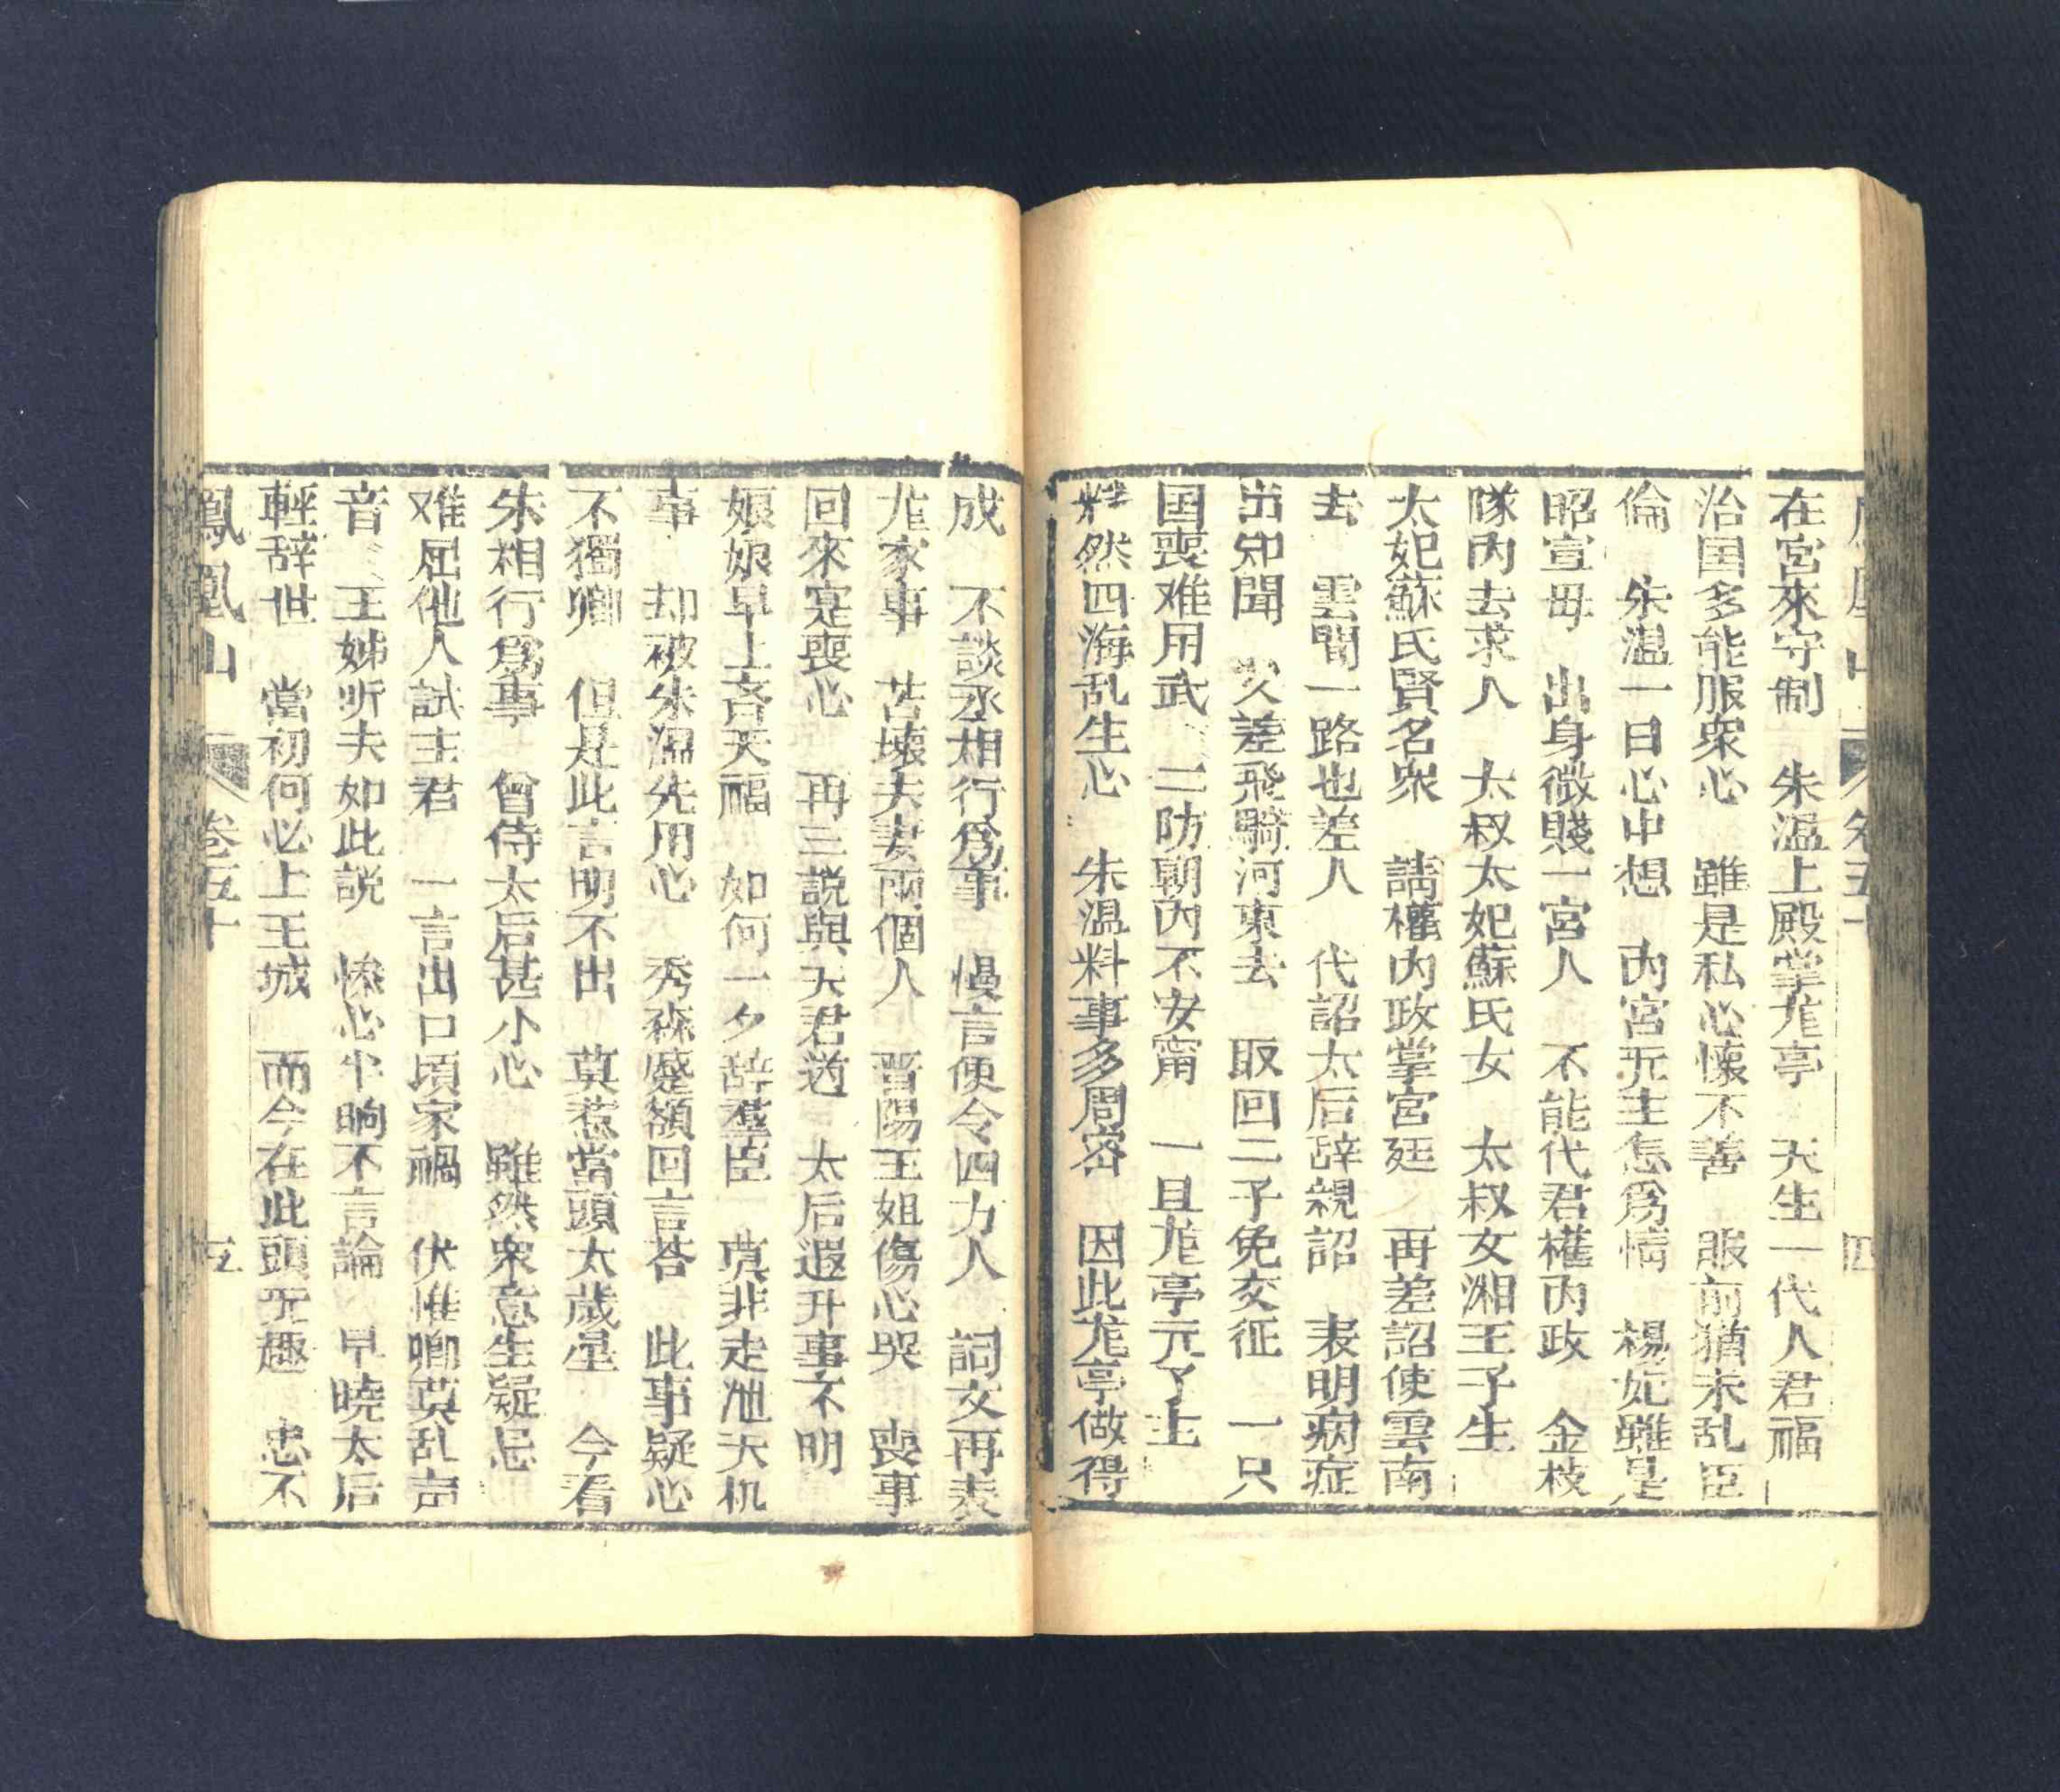 在宮來守制　朱溫上殿掌尨亭　天生一代人君福
治国多能服衆心　雖是私心懷不善　眼前猶未乱臣
倫　朱溫一日心中想　內宮无主怎爲情　楊妃雖是
昭宣毋　出身微賤一宮人　不能代君權內政　金枝
隊內去求人　太叔太妃蘇氏女　太叔女湘王子生
太妃蘇氏賢名衆　請權內政掌宮廷　再差詔使雲南
去　雲間一路也差人　代詔太后辞親詔　表明病症
出知聞　又差飛騎河東去　取回二子免交征　一只
国喪难用武　二防朝內不安甯　一旦尨亭元了主
然四海乱生心　朱溫料事多周密　因此尨亭做得
成　不談丞相行爲事　慢言便令四方人　詞文再表
尨家事　苦壞夫妻兩個人　晋陽王姐傷心哭　喪事
回來寔喪心　再三説與夫君道　太后遐升事不明
娘娘早上吝天福　如何一夕辞羣臣　莫非走泄天机
事　却被朱溫先用心　秀森蹙額回言荅　此事疑心
不獨卿　但是此言明不出　莫惹當頭太歲星　今看
朱相行爲事　曾侍太后甚小心　雖然衆意生疑忌
难屈他人試主君　一言出口頃家禍　伏惟卿莫乱声
音　王姊听夫如此説　惨心半晌不言論　早曉太后
輕辞世　當初何必上王城　而今在此頭无趣　忠不
鳳凰山　卷五十　五